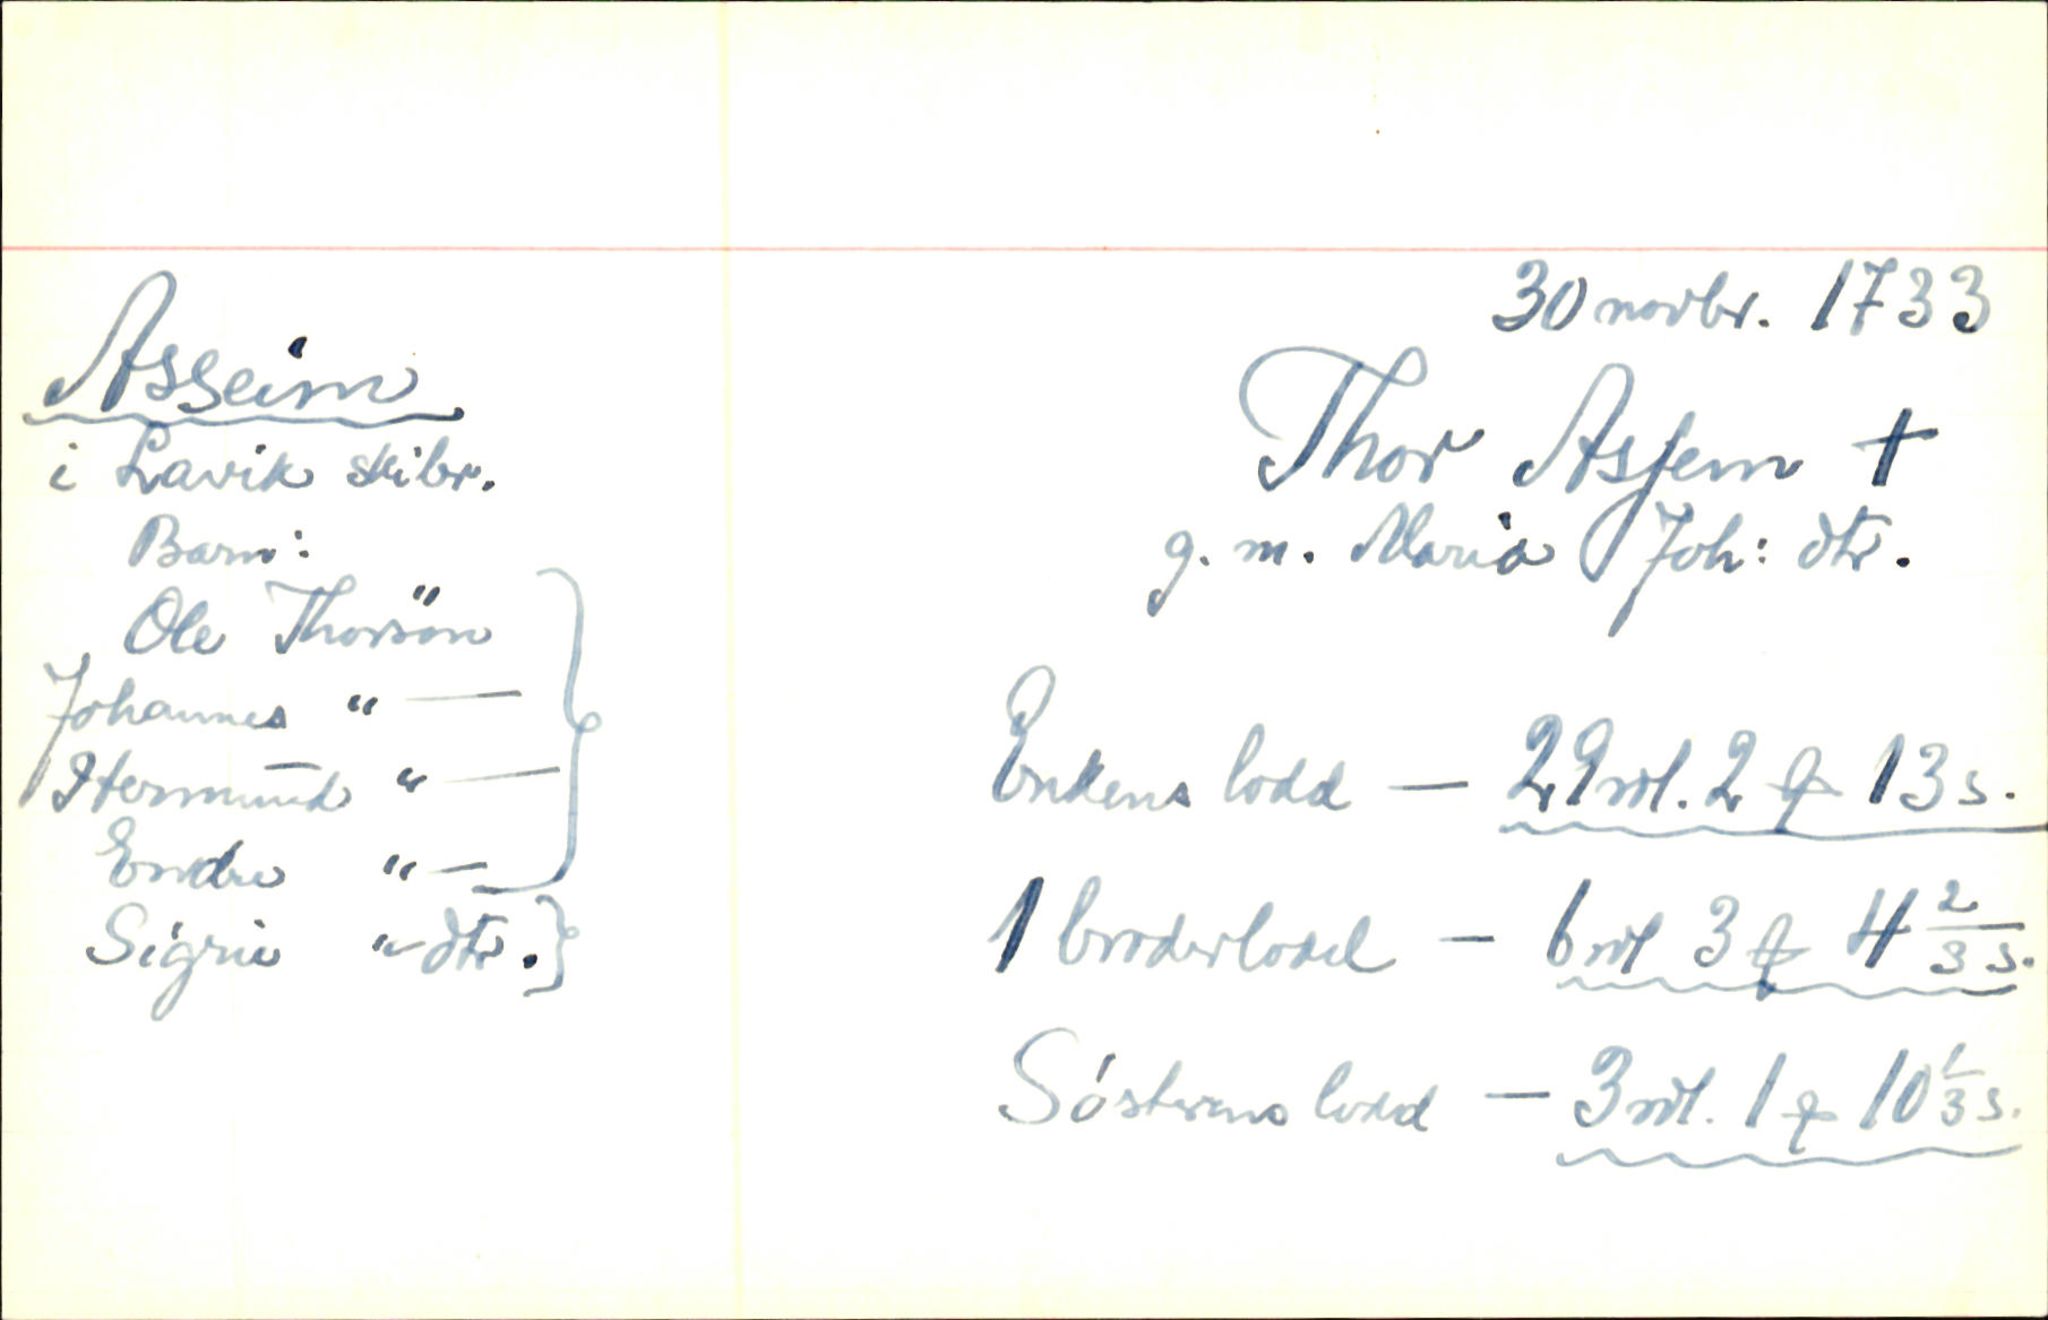 30 novbr. 1733
Asseim
i Lavik skibr.
Barn:
Ole Thorsön
Johannes " —
Hermund " —
Endre " —
Sigrie " dtr.
Thor Asjem †
g. m. Maria Joh: dtr.
Enkens lodd — 29 rdl. 2 ꝗ 13 s.
1 broderlodd — 6 rdl 3 ꝗ 4 2/3 s.
Søsterens lodd — 3 rdl. 1 ꝗ 10 1/3 s.